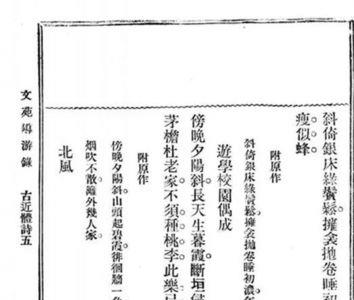 斜倚銀床綠鬢鬆擁衾拋卷睡初
瘦似蜂
附原作
斜倚銀床綠鬢鬆擁衾拋卷睡初濃
遊學校園偶成
傍晚夕陽斜長天生暮霞斷垣
茅檐杜老家不須種桃李此樂
附原作
傍晚夕陽斜山頭起碧霞徘徊牆一
烟吹不散灘外幾人家
北風
文苑導游錄 古近體詩五